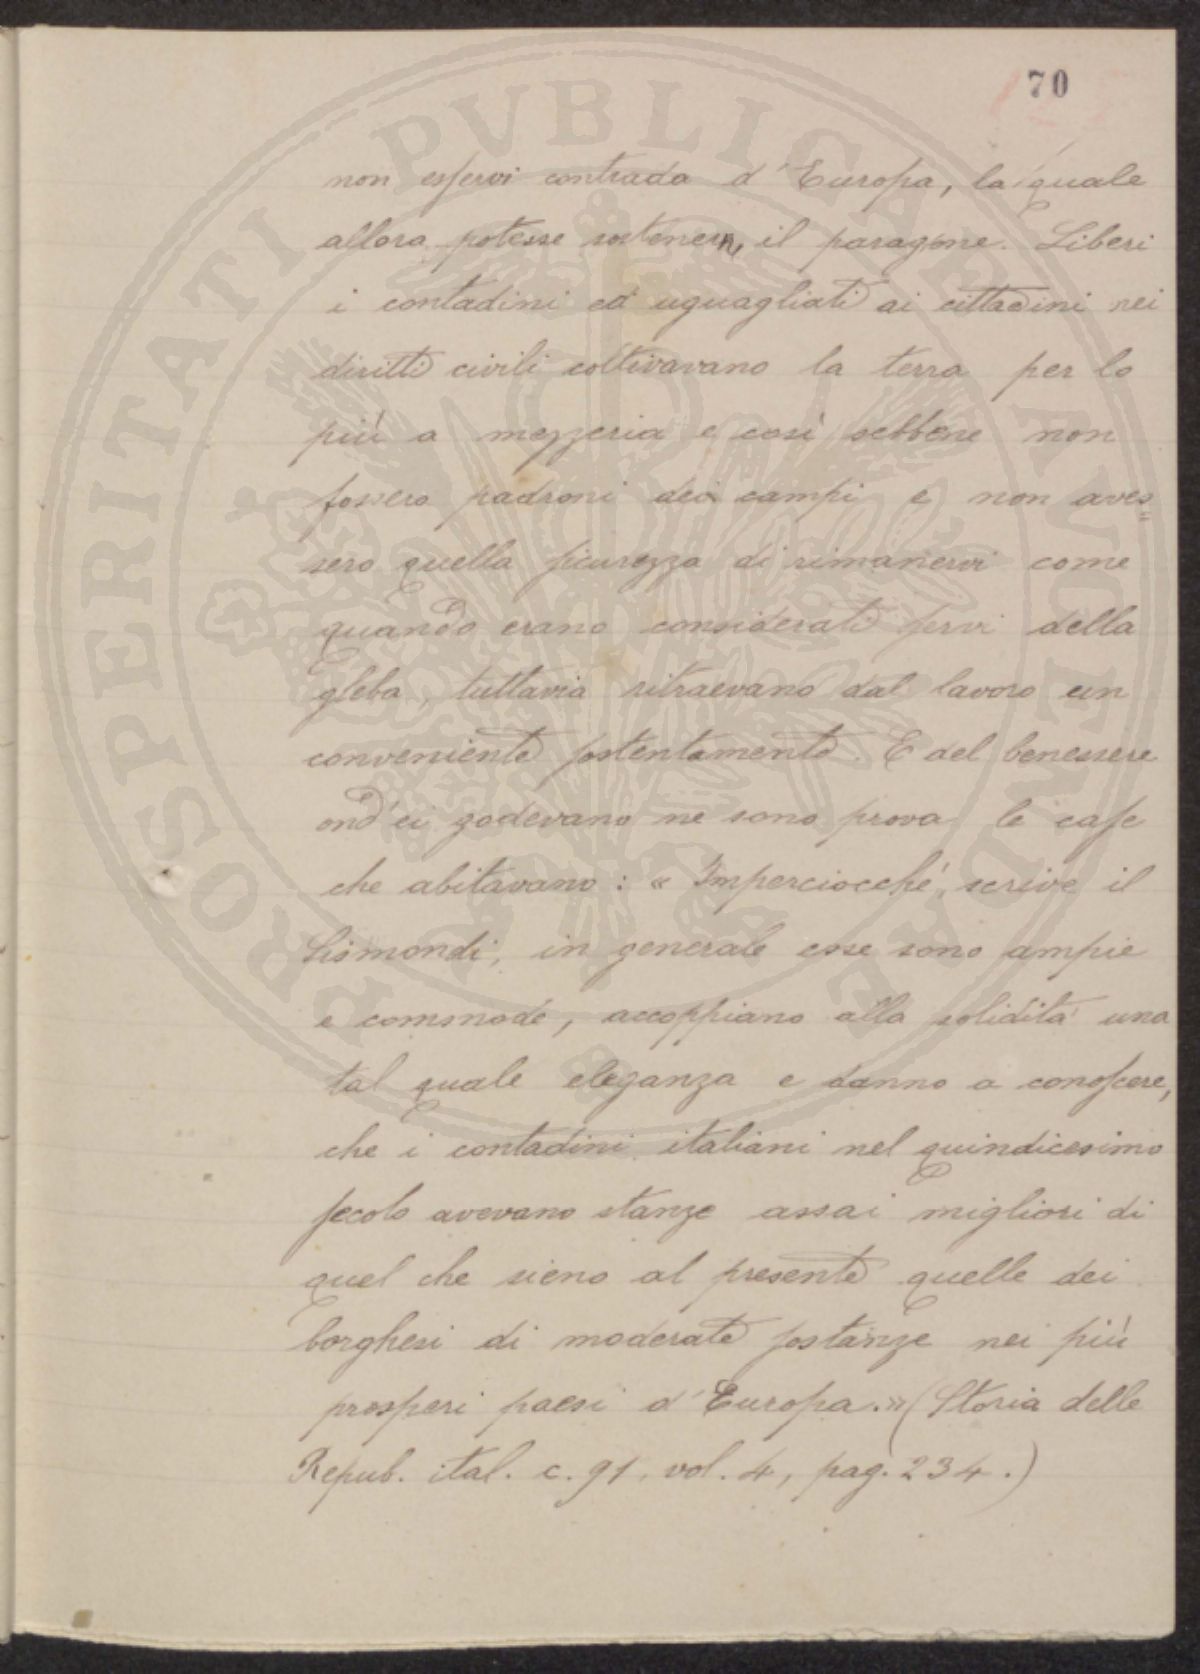 70
non esservi contrada d'Europa, la quale
allora potesse sostenerne il paragone. Liberi
i contadini ed uguagliati ai cittadini nei
diritti civili coltivavano la terra per lo
più a mezzeria e così sebbene non
fossero padroni dei campi e non aves=
sero quella sicurezza di rimanervi come
quando erano considerati servi della
gleba, tuttavia ritraevano dal lavoro un
conveniente sostentamento. E del benessere
ond'ei godevano ne sono prova le case
che abitavano: « Imperciocché, scrive il
Sismondi, in generale esse sono ampie
e commode, accoppiano alla solidità una
tal quale eleganza e danno a conoscere,
che i contadini italiani nel quindicesimo
secolo avevano stanze assai migliori di
quel che sieno al presente quelle dei
borghesi di moderate sostanze nei più
prosperi paesi d'Europa.» (Storia delle
Repub. ital. c. 91, vol. 4, pag. 234.)
PROSPERITATI PVBLICAE AVGENDAE